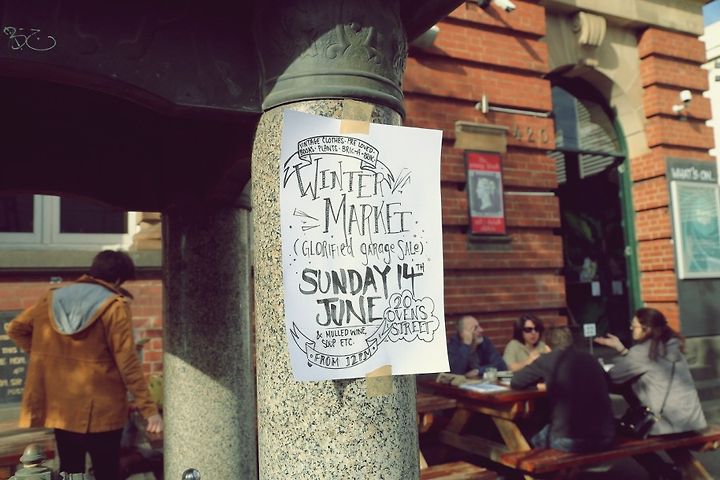 VINTAGE CLOTHES · PRE LOVED ·
BOOKS · PLANTS · BRIC-A-BRAC ·
WINTER
MARKET
(GLORIFIED GARAGE SALE)
SUNDAY 14TH
JUNE
20
OVENS
STREET
& MULLED WINE,
SOUP ETC.
· FROM 12PM ·
420
WHAT'S ON...
THIS